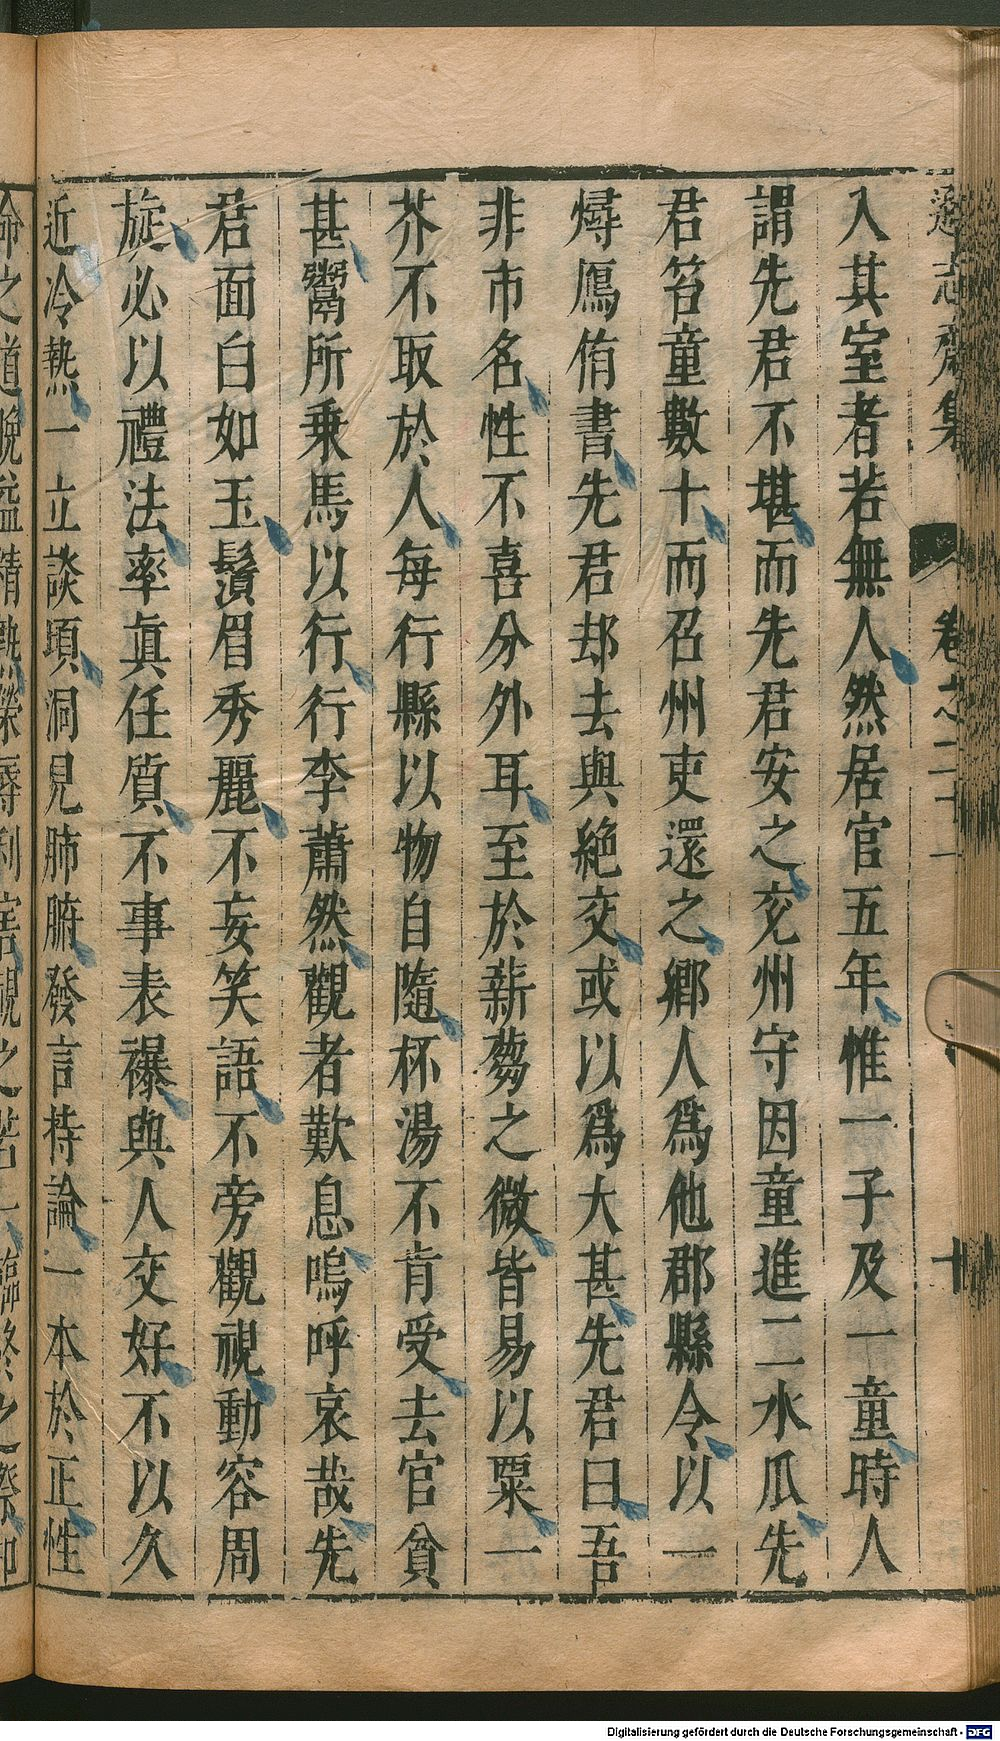 遜志齋集 卷之二十一 十
入其室者若無人然居官五年惟一子及一童時人
謂先君不堪而先君安之兖州守因童進二水瓜先
君笞童數十而召州吏還之鄉人爲他郡縣令以一
燖鴈侑書先君却去與絶交或以爲大甚先君曰吾
非市名性不喜分外耳至於薪蒭之微皆易以粟一
芥不取於人每行縣以物自隨杯湯不肯受去官貧
甚鬻所乗馬以行行李蕭然觀者歎息嗚呼哀哉先
君面白如玉鬚眉秀麗不妄笑語不旁觀視動容周
旋必以禮法率眞任質不事表襮與人交好不以久
近冷熱一立談頃洞見肺腑發言持論一本於正性
命之道晩益精熟榮辱利害視之若一臨終之際神
Digitalisierung gefördert durch die Deutsche Forschungsgemeinschaft - DFG